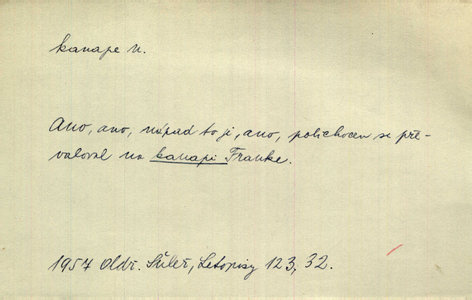 kanape n.
Ano, ano, nápad to je, ano, polichocen se pře-
valoval na kanapi Franke.
1957 Oldř. Šuleř, Letopisy 123, 32.